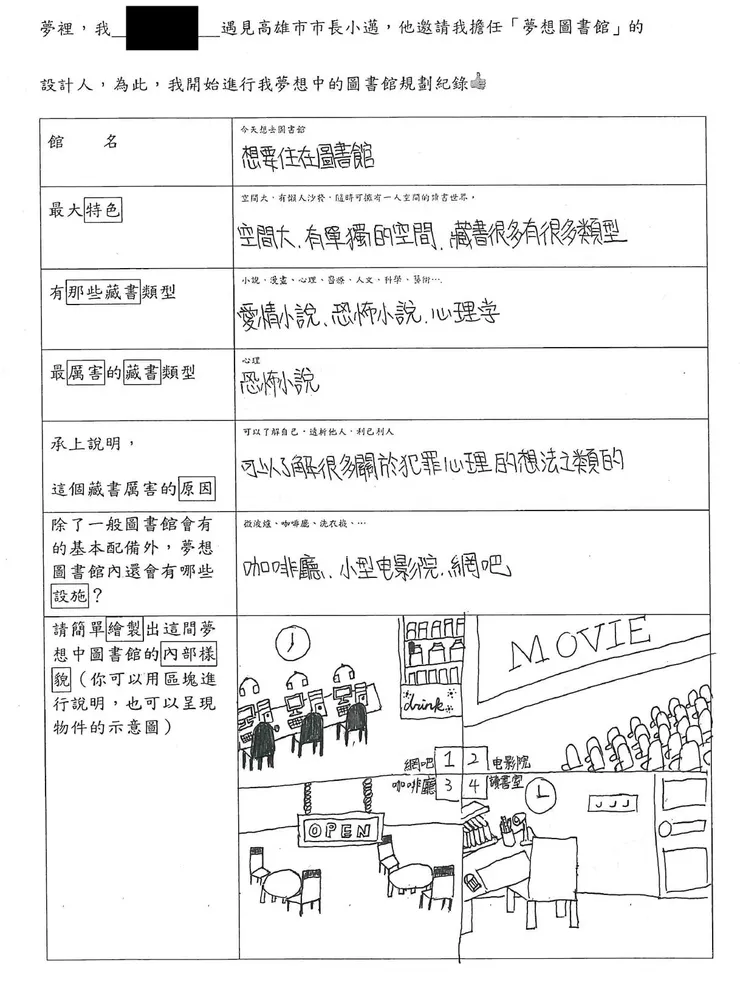 夢裡，我遇見高雄市市長小邁，他邀請我擔任「夢想圖書館」的
設計人，為此，我開始進行我夢想中的圖書館規劃紀錄👍
館　名
今天想去圖書館
想要住在圖書館
最大特色
空間大，有懶人沙發，隨時可擁有一人空間的讀書世界。
空間大、有單獨的空間、藏書很多有很多類型
有那些藏書類型
小說、漫畫、心理、醫療、人文、科學、藝術…
愛情小說、恐怖小說、心理学
最厲害的藏書類型
心理
恐怖小說
承上說明，
這個藏書厲害的原因
可以了解自己，透析他人，利己利人
可以了解很多關於犯罪心理的想法之類的
除了一般圖書館會有
的基本配備外，夢想
圖書館內還會有哪些
設施？
微波爐、咖啡廳、洗衣機、…
咖啡廳、小型电影院、網吧
請簡單繪製出這間夢
想中圖書館的內部樣
貌（你可以用區塊進
行說明，也可以呈現
物件的示意圖）
drink
MOVIE
網吧 1 2 电影院
咖啡廳 3 4 讀書室
OPEN